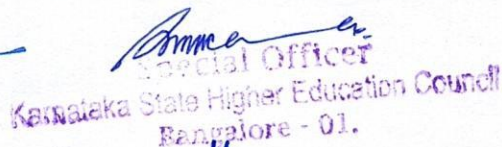 Special Officer
Karnataka State Higher Education Council
Bangalore - 01.